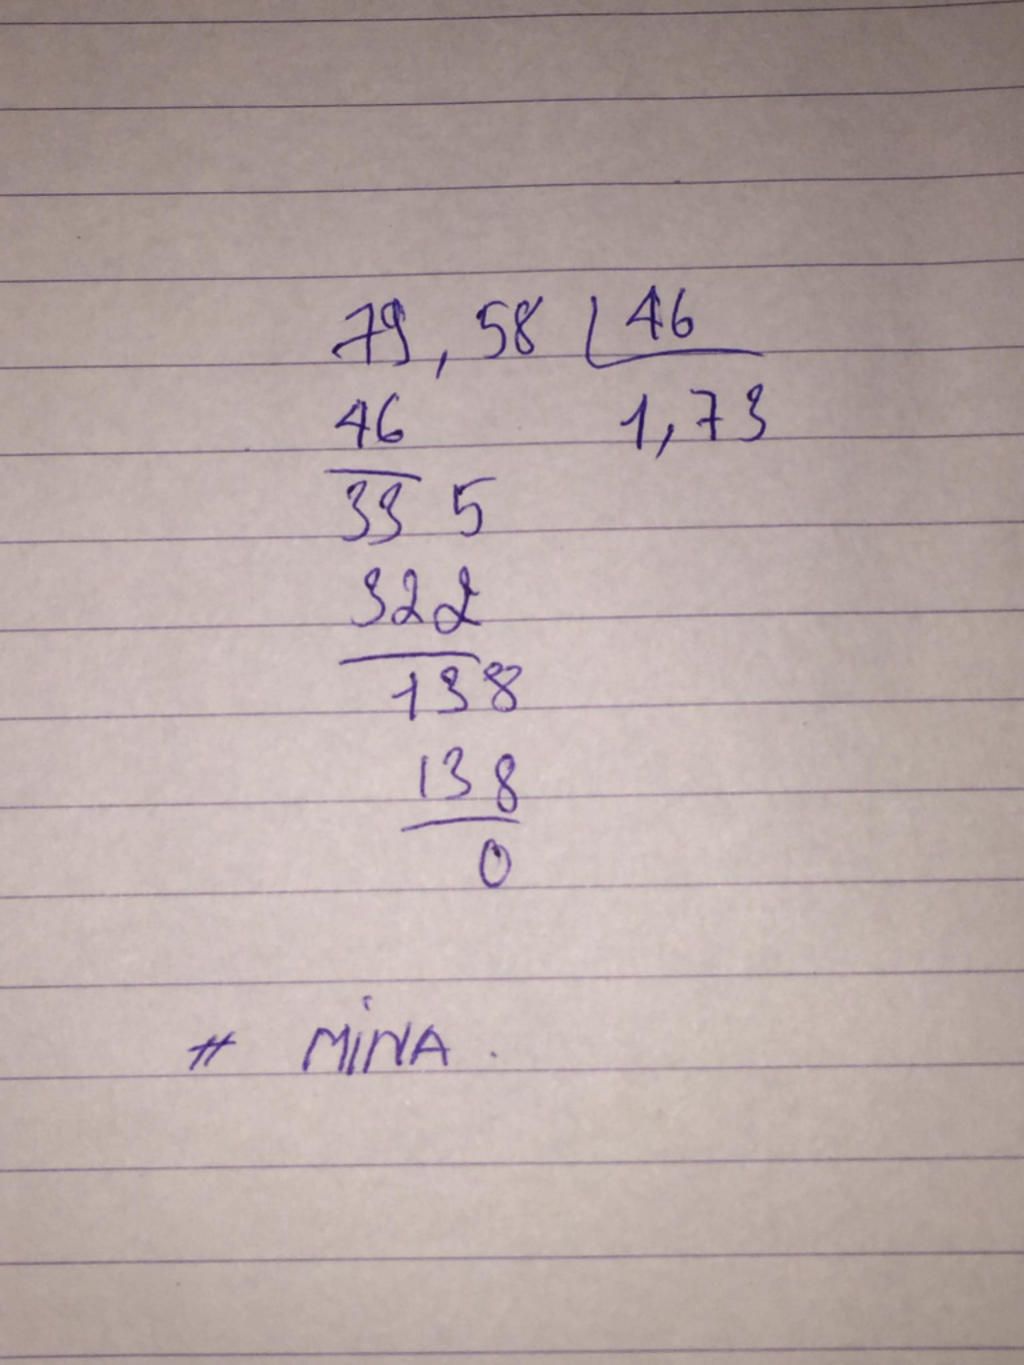 79,58 46
46 1,73
33 5
322
138
138
0
# MiNA.